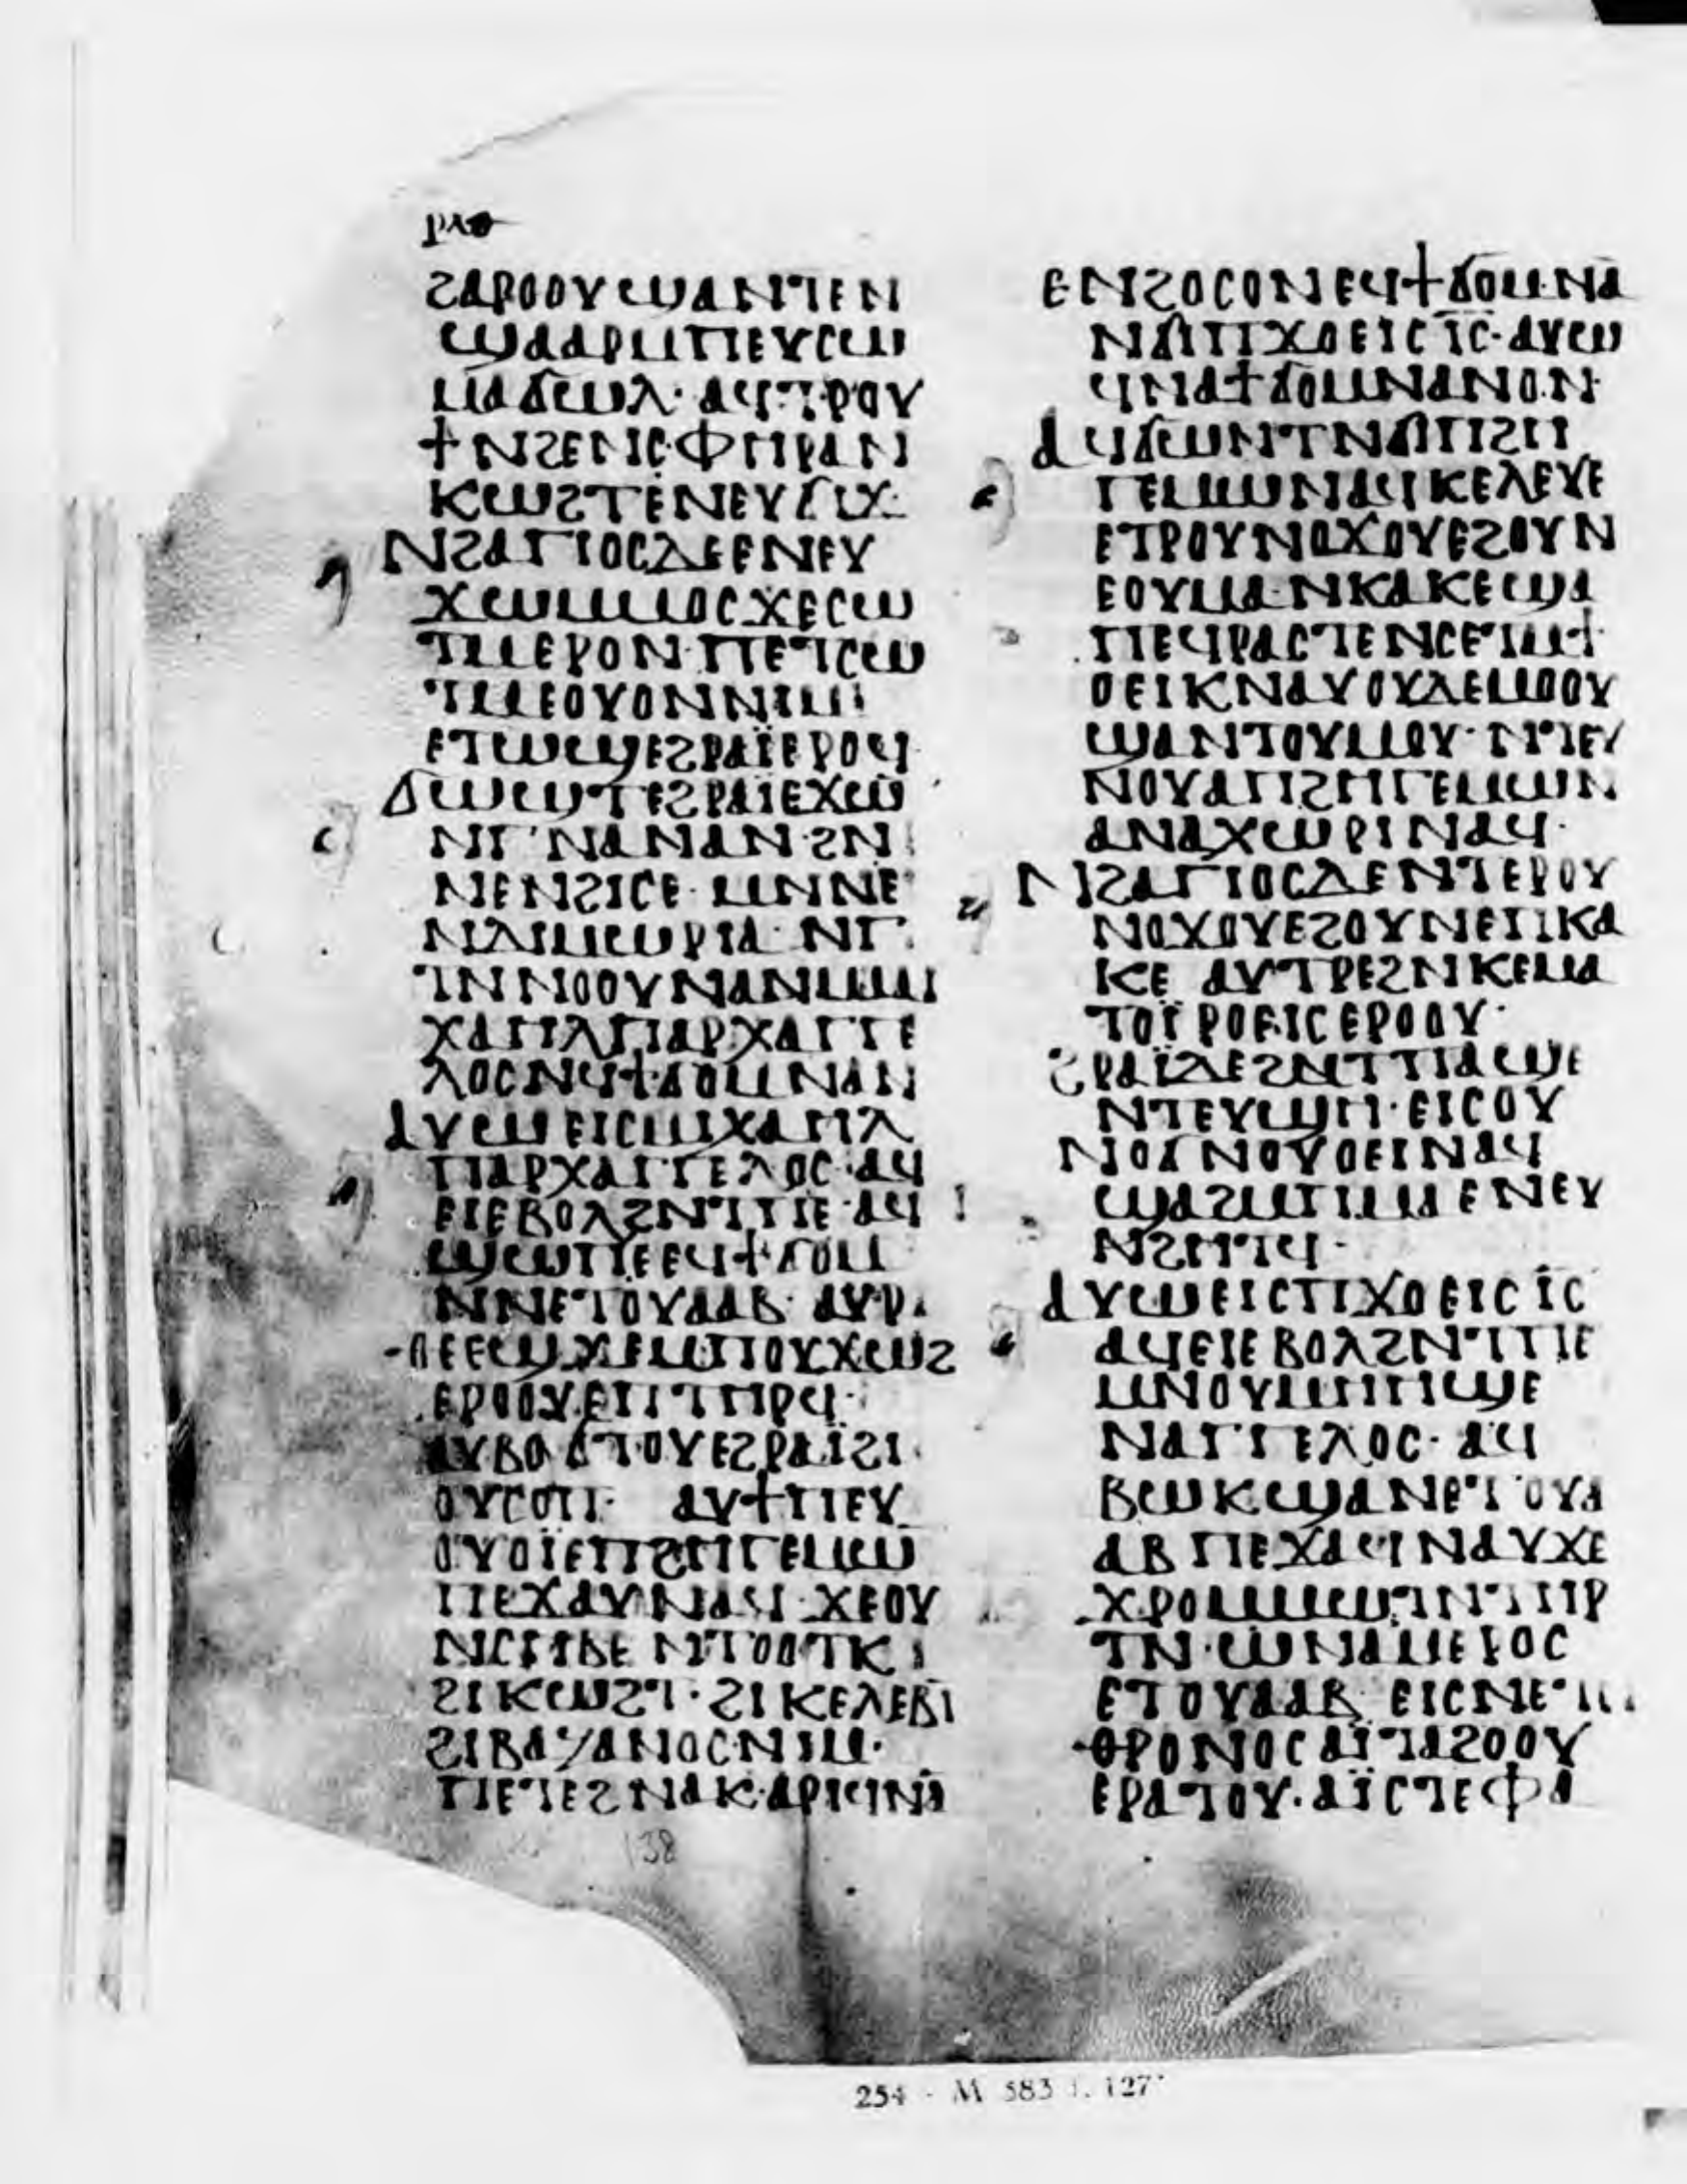 ⲣⲗⲑ
ϩⲁⲣⲟⲟⲩ ϣⲁⲛⲧⲉⲛ
ϣⲁⲁⲣ ⲙⲡⲉⲩⲥⲱ
ⲙⲁ ϭⲱⲗ· ⲁϥⲧⲣⲟⲩ
ϯ ⲛϩⲉⲛⲓⲥ·ⲫⲏⲣⲁⲛ
ⲕⲱϩⲧ ⲉⲛⲉⲩϭⲓϫ·
ⲛϩⲁⲅⲓⲟⲥ ⲇⲉ ⲉⲛⲉⲩ
ϫⲱ ⲙⲙⲟⲥ ϫⲉ ⲥⲱ
ⲧⲙ ⲉⲣⲟⲛ ⲡⲉⲧⲥⲱ
ⲧⲙ ⲉⲟⲩⲟⲛ ⲛⲓⲙ
ⲉⲧⲱϣ ⲉϩⲣⲁⲓ̈ ⲉⲣⲟϥ
ϭⲱϣⲧ ⲉϩⲣⲁⲓ ⲉϫⲱ
ⲛⲅ ⲛⲁ ⲛⲁⲛ ϩⲛ
ⲛⲉⲛϩⲓⲥⲉ· ⲙⲛ ⲛⲉ
ⲛⲁⲓⲙⲱⲣⲓⲁ· ⲛⲅ
ⲧⲛⲛⲟⲟⲩ ⲛⲁⲛ ⲙⲙⲓ
ⲭⲁⲏⲗ ⲡⲁⲣⲭⲁⲅⲅⲉ
ⲗⲟⲥ ⲛϥϯϭⲟⲙ ⲛⲁⲛ
ⲁⲩⲱ ⲉⲓⲥ ⲙⲓⲭⲁⲏⲗ
ⲡⲁⲣⲭⲁⲅⲅⲉⲗⲟⲥ· ⲁϥ
ⲉⲓ ⲉⲃⲟⲗ ϩⲛ ⲧⲡⲉ· ⲁϥ
ϣⲱⲡⲉ ⲉϥϯϭⲟⲙ
ⲛⲛⲉⲧⲟⲩⲁⲁⲃ· ⲁⲩⲣ
ⲑⲉ ⲉϣϫⲉ ⲙⲡⲟⲩϫⲱϩ
ⲉⲣⲟⲟⲩ ⲉⲡⲧⲏⲣϥ·
ⲁⲩⲃⲟϭⲟⲩ ⲉϩⲣⲁⲓ̈ ϩⲓ
ⲟⲩⲥⲟⲡ· ⲁⲩϯⲡⲉⲩ
ⲟⲩⲟⲓ̈ ⲉⲡϩⲏⲅⲉⲙⲱ
ⲡⲉϫⲁⲩ ⲛⲁϥ· ϫⲉ ⲟⲩ
ⲛ ⲥⲏⲃⲉ ⲛⲧⲟⲟⲧⲕ
ϩⲓ ⲕⲱϩⲧ· ϩⲓ ⲕⲉⲗⲉⲃⲓ
ϩⲓ ⲃⲁⲥⲁⲛⲟⲥ ⲛⲓⲙ·
ⲡⲉⲧⲉϩⲛⲁⲕ· ⲁⲣⲓϥ ⲛⲁ
ⲉⲛϩⲟⲥⲟⲛ ⲉϥϯϭⲟⲙ ⲛⲁ
ⲛ ⲛϭⲓ ⲡϫⲟⲉⲓⲥ ⲓⲥ· ⲁⲩⲱ
ϥⲛⲁϯϭⲟⲙ ⲛⲁⲛ ⲟⲛ·
ⲁϥϭⲱⲛⲧ ⲛϭⲓ ⲡϩⲏ
ⲅⲉⲙⲱⲛ ⲁϥⲕⲉⲗⲉⲩⲉ
ⲉⲧⲣⲟⲩⲛⲟϫⲟⲩ ⲉϩⲟⲩⲛ
ⲉⲟⲩⲙⲁ ⲛⲕⲁⲕⲉ ϣⲁ
ⲡⲉϥⲣⲁⲥⲧⲉ ⲛⲥⲉⲧⲙϯ
ⲟⲉⲓⲕ ⲛⲁⲩ ⲟⲩⲇⲉ ⲙⲟⲟⲩ
ϣⲁⲛⲧⲟⲩⲙⲟⲩ· ⲛⲧⲉⲩ
ⲛⲟⲩ ⲁⲡϩⲏⲅⲉⲙⲱⲛ
ⲁⲛⲁⲭⲱⲣⲓ ⲛⲁϥ·
ⲛϩⲁⲅⲓⲟⲥ ⲇⲉ ⲛⲧⲉⲣⲟⲩ
ⲛⲟϫⲟⲩ ⲉϩⲟⲩⲛ ⲉⲡⲕⲁ
ⲕⲉ ⲁⲩⲧⲣⲉ ϩⲛⲕⲉⲙⲁ
ⲧⲟⲓ̈ ⲣⲟⲉⲓⲥ ⲉⲣⲟⲟⲩ·
ϩⲣⲁⲓ̈ ⲇⲉ ϩⲛ ⲧⲡⲁϣⲉ
ⲛⲧⲉⲩϣⲏ· ⲉⲓⲥ ⲟⲩ
ⲛⲟϭ ⲛⲟⲩⲟⲉⲓⲛ ⲁϥ
ϣⲁ ϩⲙ ⲡⲙⲁ ⲉⲛⲉⲩ
ⲛϩⲏⲧϥ·
ⲁⲩⲱ ⲉⲓⲥ ⲡϫⲟⲉⲓⲥ ⲓⲥ
ⲁϥⲉⲓ ⲉⲃⲟⲗ ϩⲛ ⲧⲡⲉ
ⲙⲛ ⲟⲩⲙⲏⲏϣⲉ
ⲛⲁⲅⲅⲉⲗⲟⲥ· ⲁϥ
ⲃⲱⲕ ϣⲁ ⲛⲉⲧⲟⲩⲁ
ⲁⲃ ⲡⲉϫⲁϥ ⲛⲁⲩ ϫⲉ
ϫⲣⲟ ⲙⲙⲱⲧⲛ ⲧⲏⲣ
ⲧⲛ· ⲱ ⲛⲁⲙⲉⲣⲟⲥ
ⲉⲧⲟⲩⲁⲁⲃ ⲉⲓⲥ ⲛⲉⲧⲛ
ⲑⲣⲟⲛⲟⲥ ⲁⲓ̈ⲧⲁϩⲟⲟⲩ
ⲉⲣⲁⲧⲟⲩ· ⲁⲓ̈ⲥⲧⲉⲫⲁ
138
254 - M 583 f. 127ᵛ